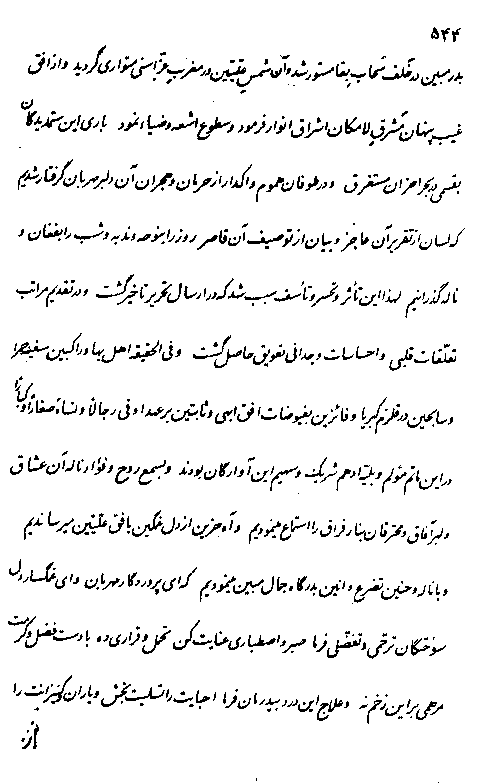 ۵۴۴
بدر مبین در خلف سحاب بقا مستور شد و آن شمس علّیّین در مغرب عزّ اسنی متواری گردید و از افق
غیب پنهان بمشرق لامکان اشراق انوار فرمود و سطوع اشعه و ضیاء نمود باری این ستمدیدگان
بقسمی در بحر احزان مستغرق و در طوفان هموم و اکدار از حرمان و هجران آن دلبر مهربان گرفتار شدیم
که لسان از تقریر آن عاجز و بیان از توصیف آن قاصر روز را بنوحه و ندبه و شب را بفغان و
ناله گذراندیم لهذا این تأثر و تحسر و تأسف سبب شد که در ارسال تحریر تأخیر گشت و در تقدیم مراتب
تعلّقات قلبی و احساسات وجدانی تعویق حاصل گشت و فی الحقیقه اهل بها و راکبین سفینه حمرا
و سابحین در قلزم کبریا و فائزین بفیوضات افق ابهی و ثابتین بر عهد اوفی رجالاً و نساءً صغاراً و کباراً
در این ماتم مؤلم و بلیّهٔ ادهم شریک و سهیم این آوارگان بودند و بسمع روح و فؤاد ناله آن عشاق
دلبر آفاق و محترقان بنار فراق را استماع مینمودیم و آه حزین از دل غمگین بافق علّیّین میرساندیم
و با ناله و حنین تضرع و انین بدرگاه جمال مبین مینمودیم که ای پروردگار مهربان وای غمگسار دل
سوختگان ترحمی و تفضلی فرما صبر و اصطباری عنایت کن تحمل و قراری ده با دست فضل و کرمت
مرهمی بر این زخم نه و علاج این درد بیدرمان فرما احبایت را تسلیت بخش و یاران و کنیزانت را
از